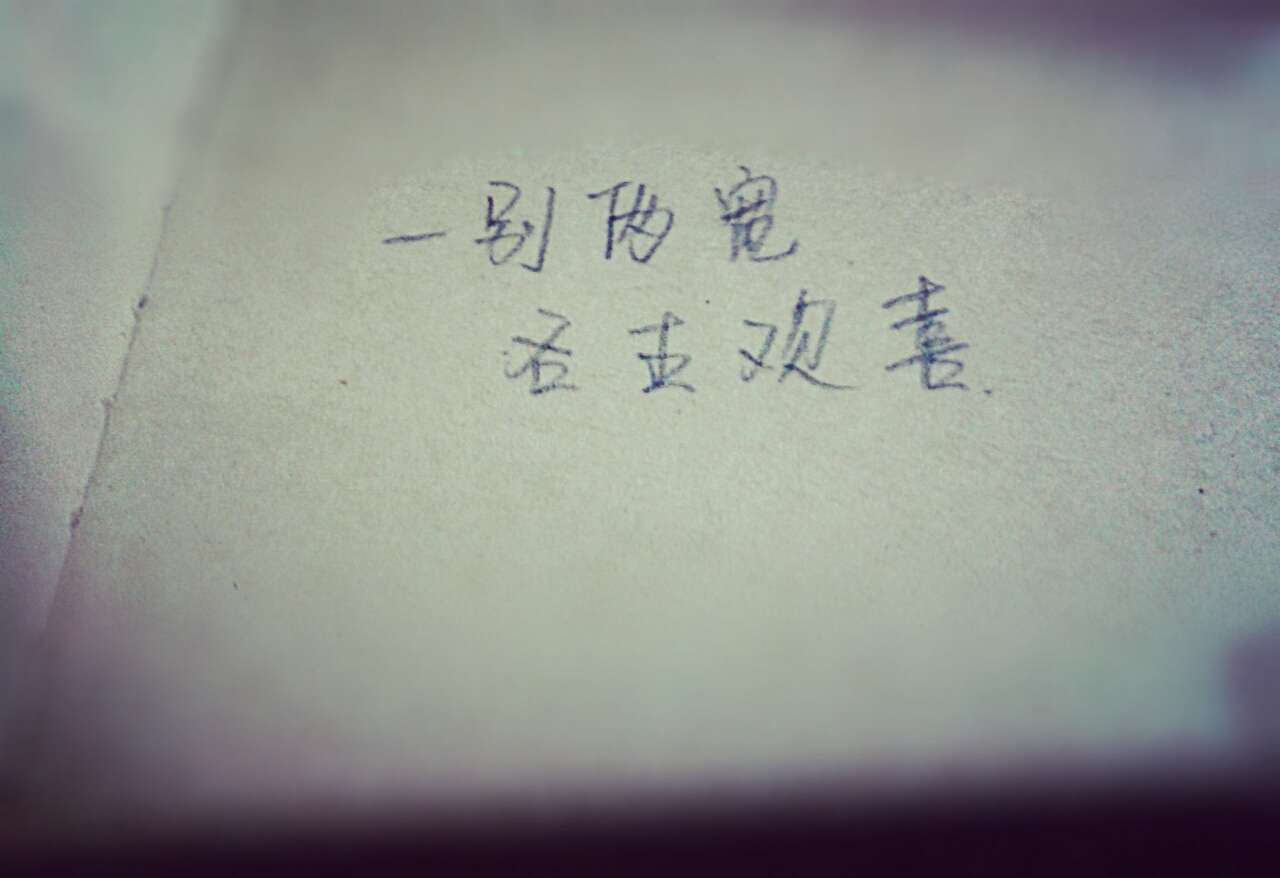 一别两宽
各生欢喜.